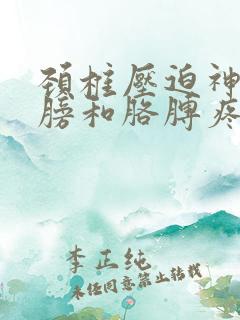 頚柱壓迫神
膀和胳膊疼
李正纯
未经同意禁止转载